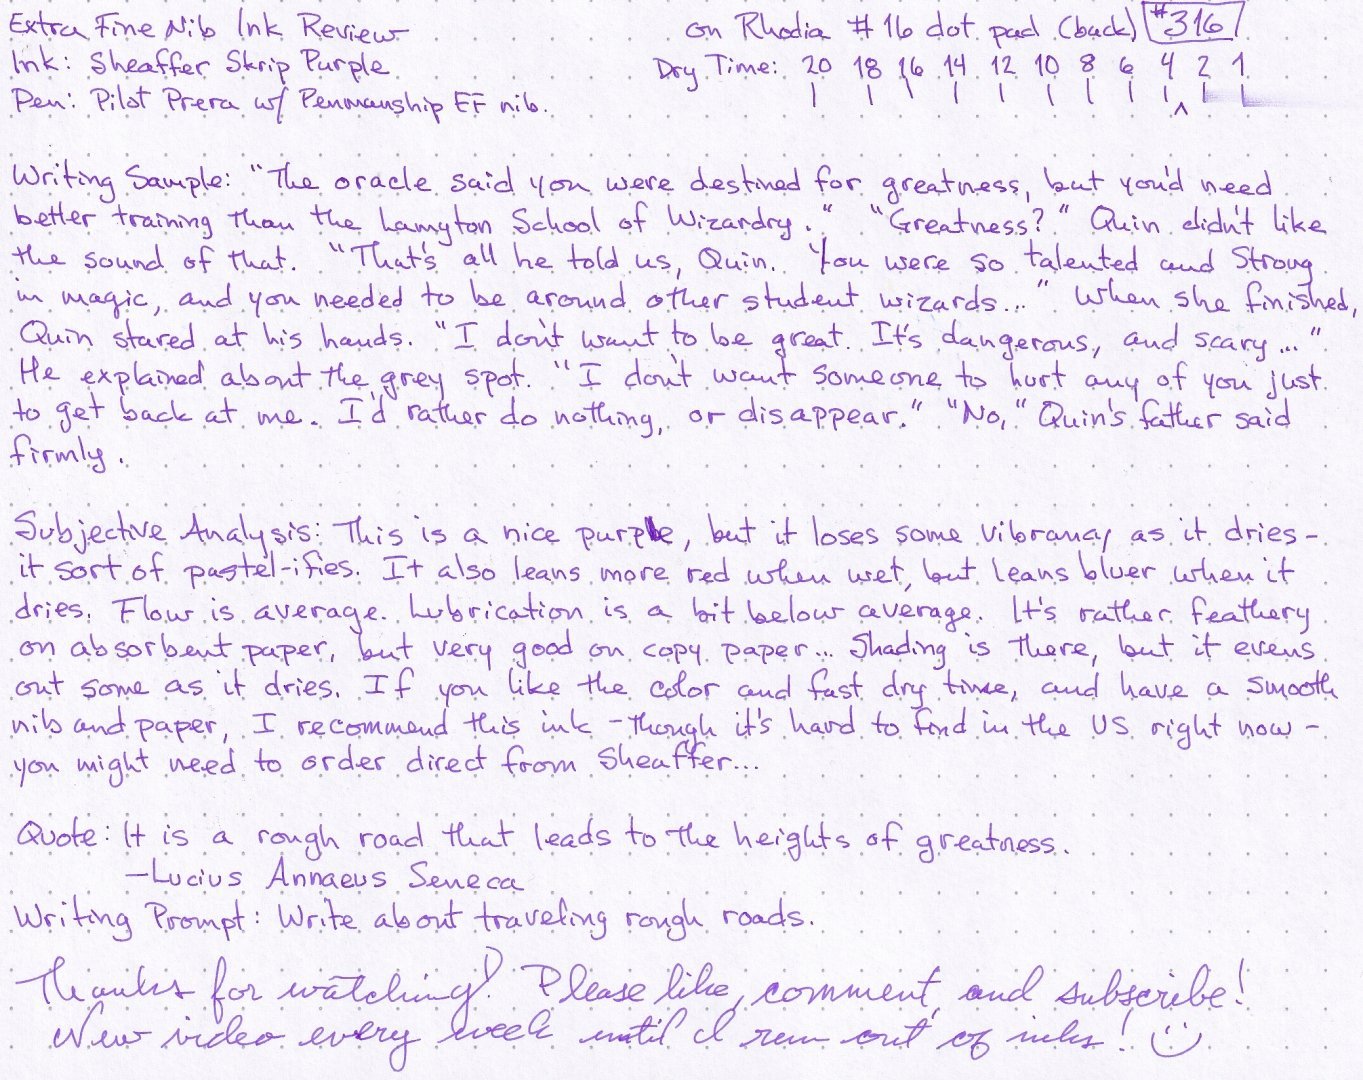 Extra Fine Nib Ink Review
on Rhodia #16 dot pad (back) #316
Ink: Sheaffer Skrip Purple
Dry Time: 20 18 16 14 12 10 8 6 4 2 1
Pen: Pilot Prera w/ Penmanship EF nib.
Writing Sample: "The oracle said you were destined for greatness, but you'd need
better training than the Lamyton School of Wizardry." "Greatness?" Quin didn't like
the sound of that. "That's all he told us, Quin. You were so talented and strong
in magic, and you needed to be around other student wizards..." When she finished,
Quin stared at his hands. "I don't want to be great. It's dangerous, and scary..."
He explained about the grey spot. "I don't want someone to hurt any of you just
to get back at me. I'd rather do nothing, or disappear." "No," Quin's father said
firmly.
Subjective Analysis: This is a nice purple, but it loses some vibrancy as it dries-
it sort of pastel-ifies. It also leans more red when wet, but leans bluer when it
dries. Flow is average. Lubrication is a bit below average. It's rather feathery
on absorbent paper, but very good on copy paper... Shading is there, but it evens
out some as it dries. If you like the color and fast dry time, and have a smooth
nib and paper, I recommend this ink - though it's hard to find in the US right now -
you might need to order direct from Sheaffer...
Quote: It is a rough road that leads to the heights of greatness.
-Lucius Annaeus Seneca
Writing Prompt: Write about traveling rough roads.
Thanks for watching! Please like, comment, and subscribe!
New video every week until I run out of inks!